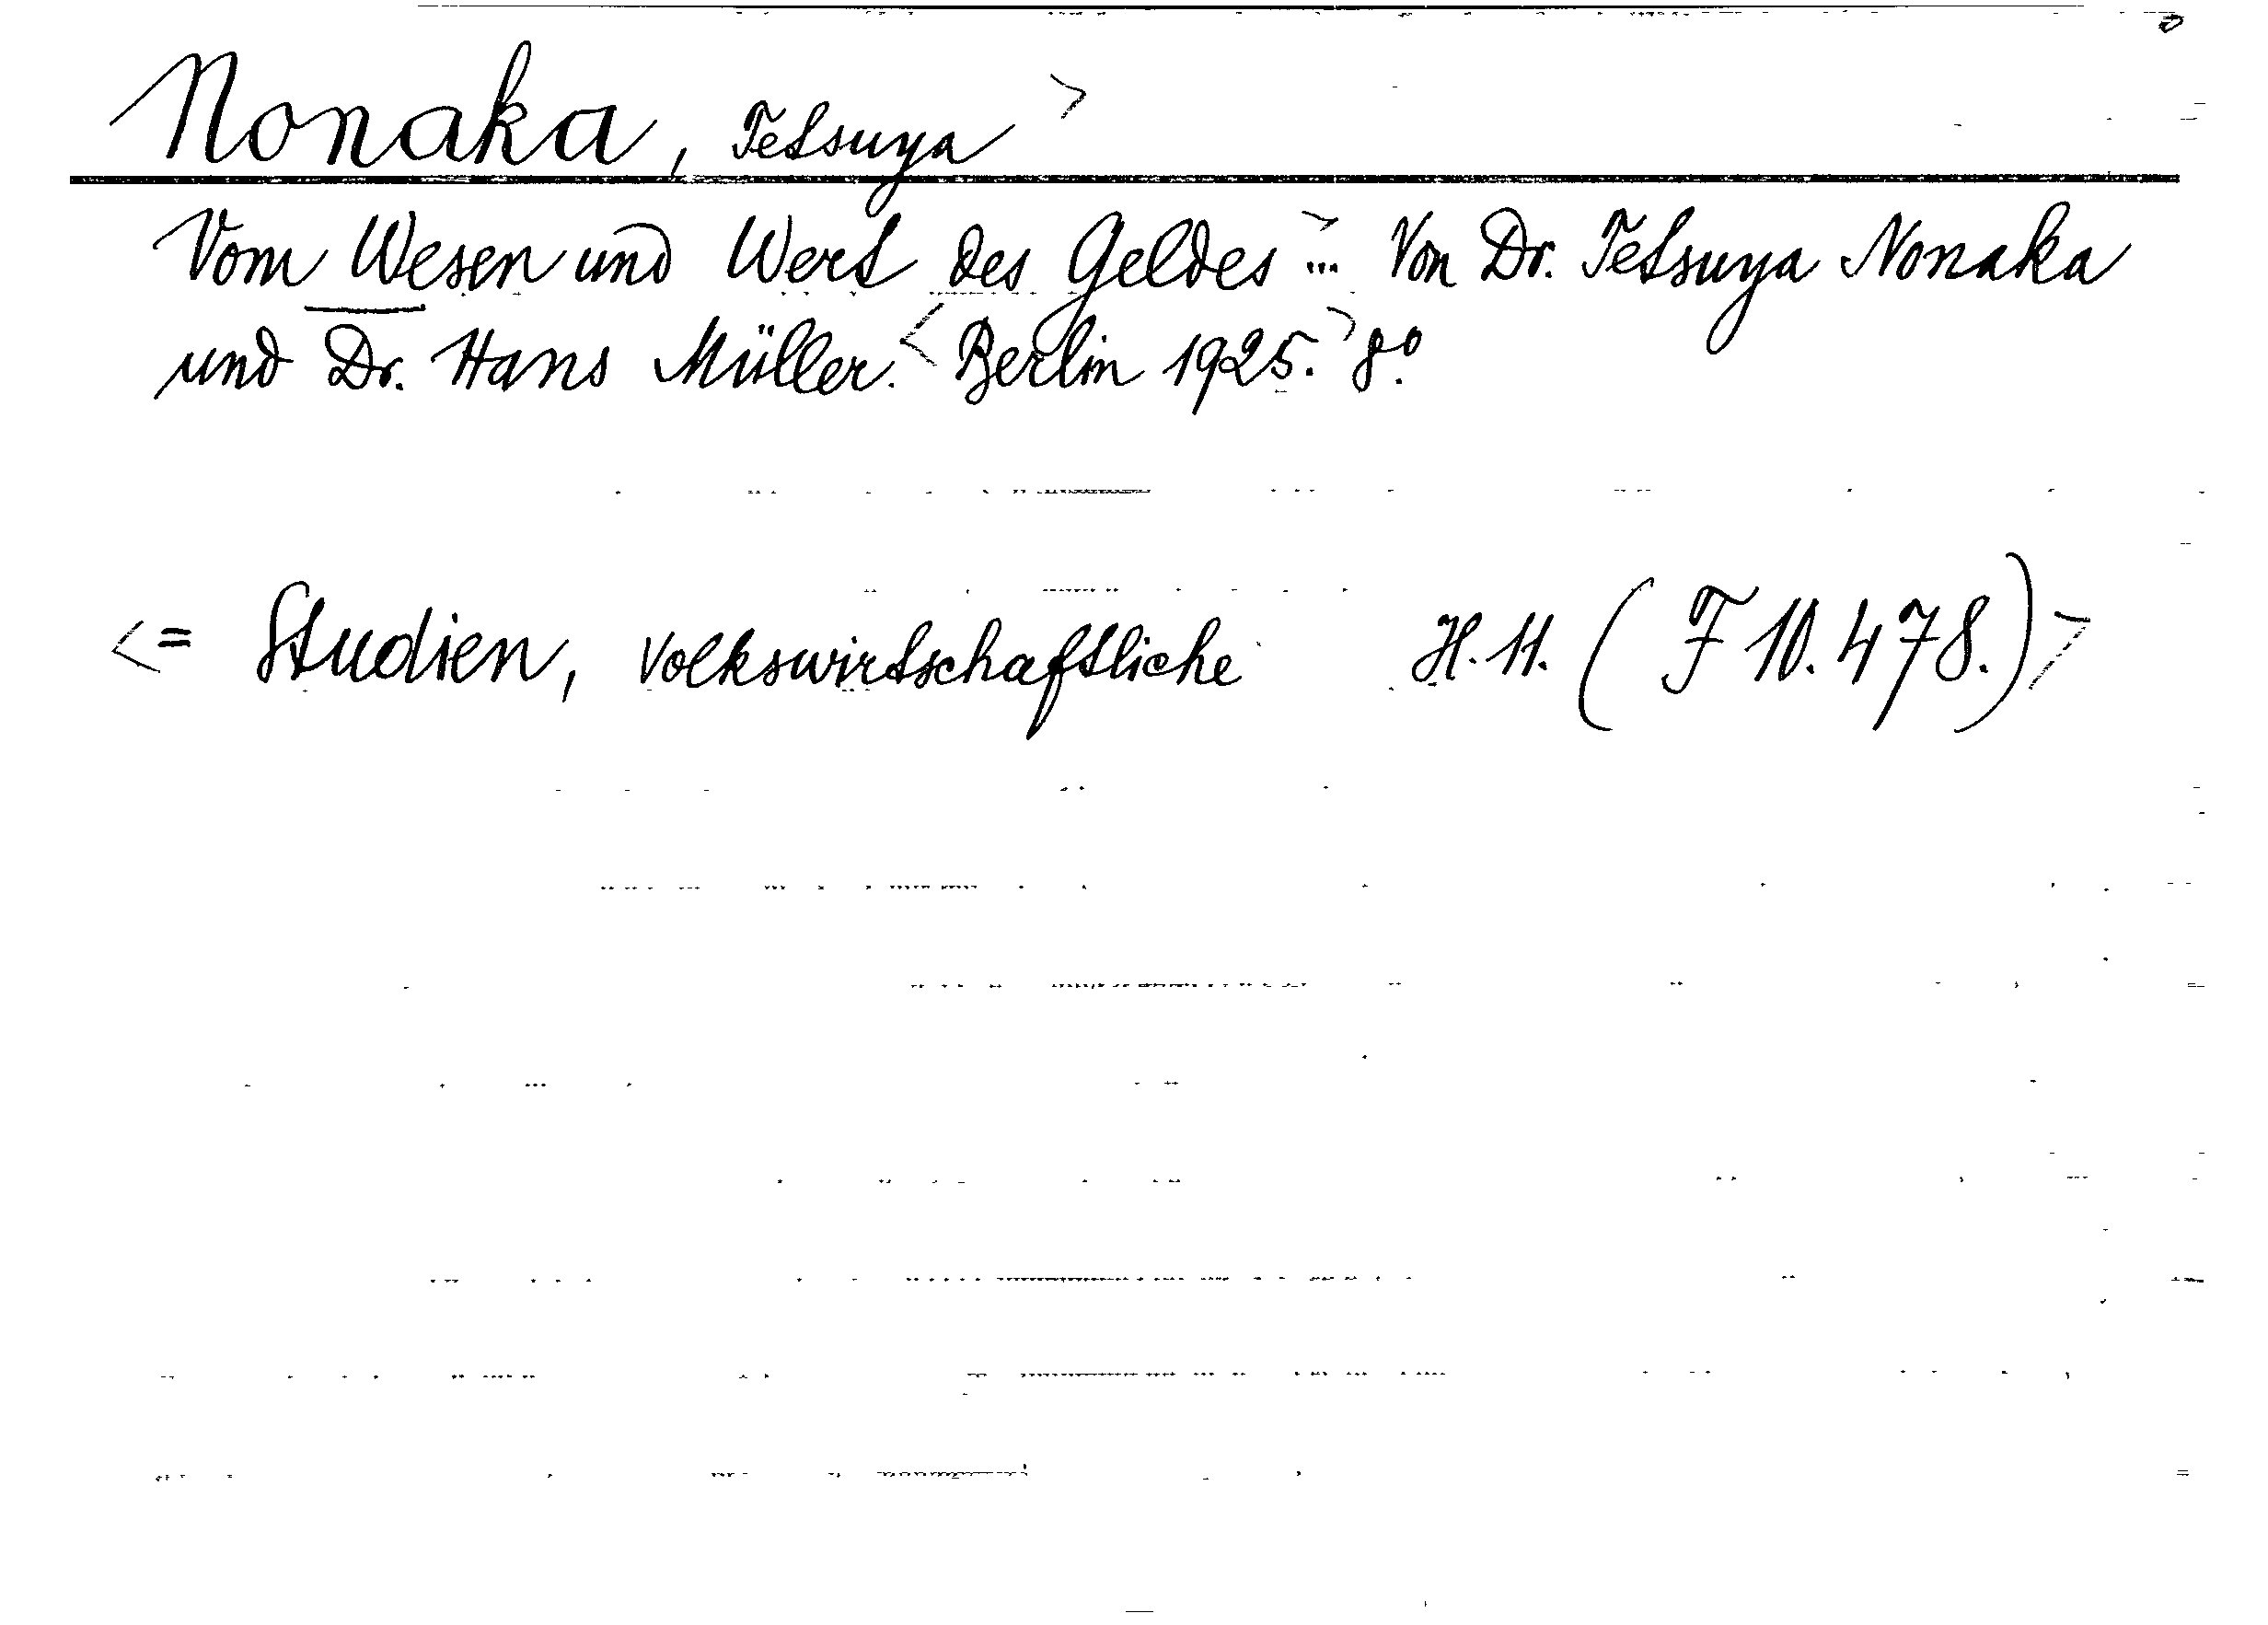 Nonaka, Tetsuya >
Vom Wesen und Wert des Geldes > ... Von Dr. Tetsuya Nonaka
und Dr. Hans Müller. < Berlin 1925. > 8.°
<= Studien, volkswirtschaftliche H. 11. (F 10.478.)>